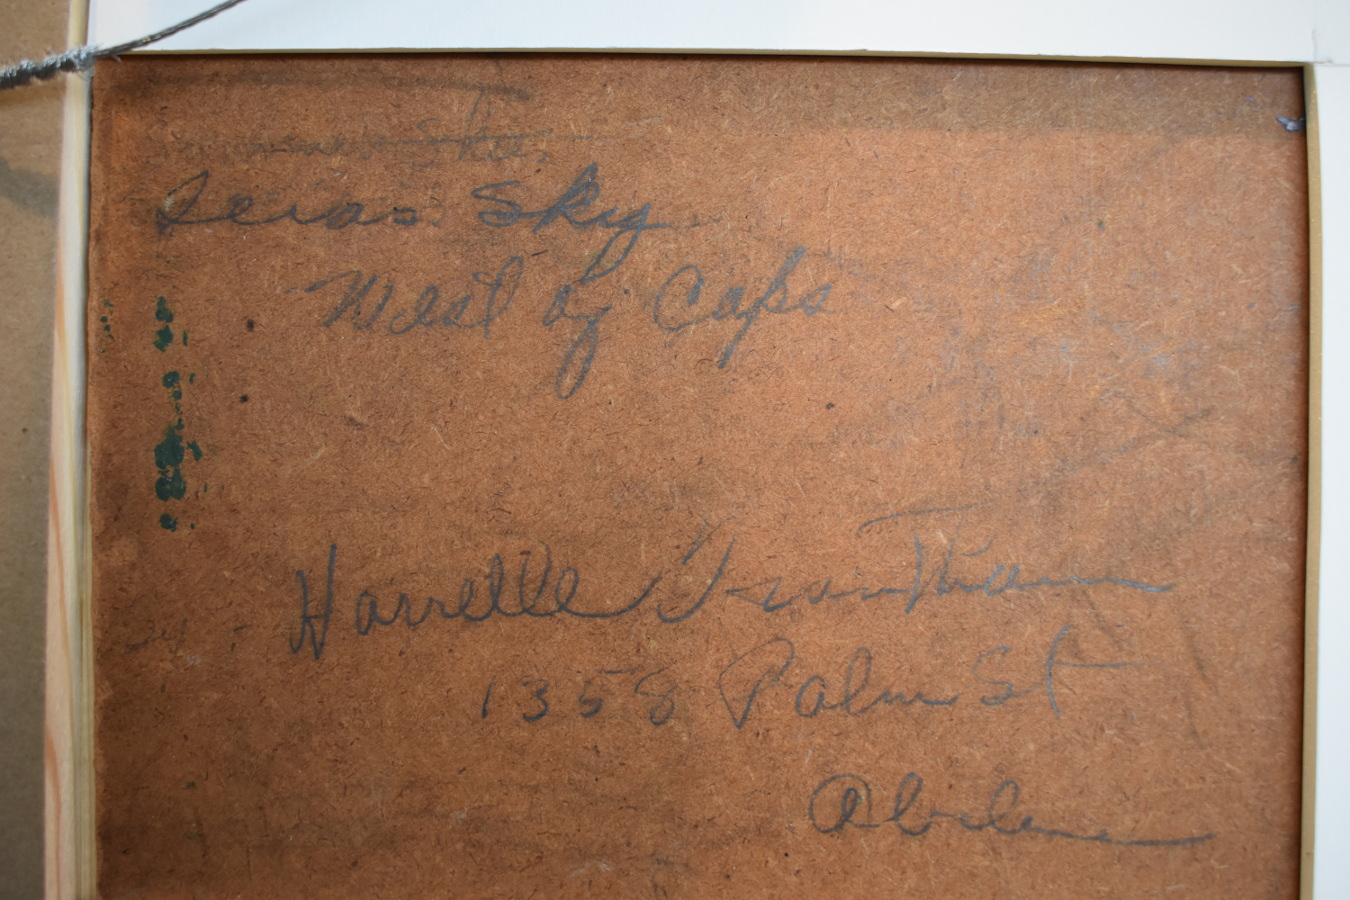 Texas Sky
West of Caps
Harrette Grantham
1358 Palm St
Abilene